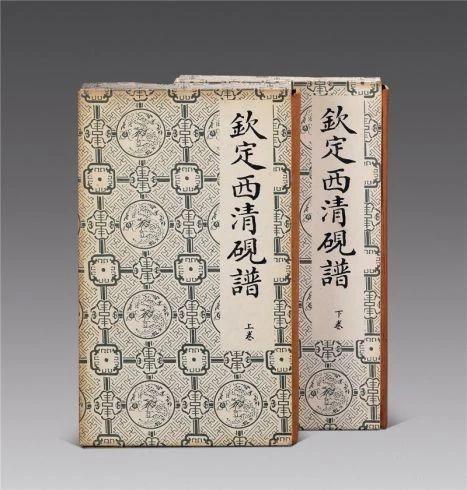 欽定西清硯譜
上卷
欽定西清硯譜
下卷